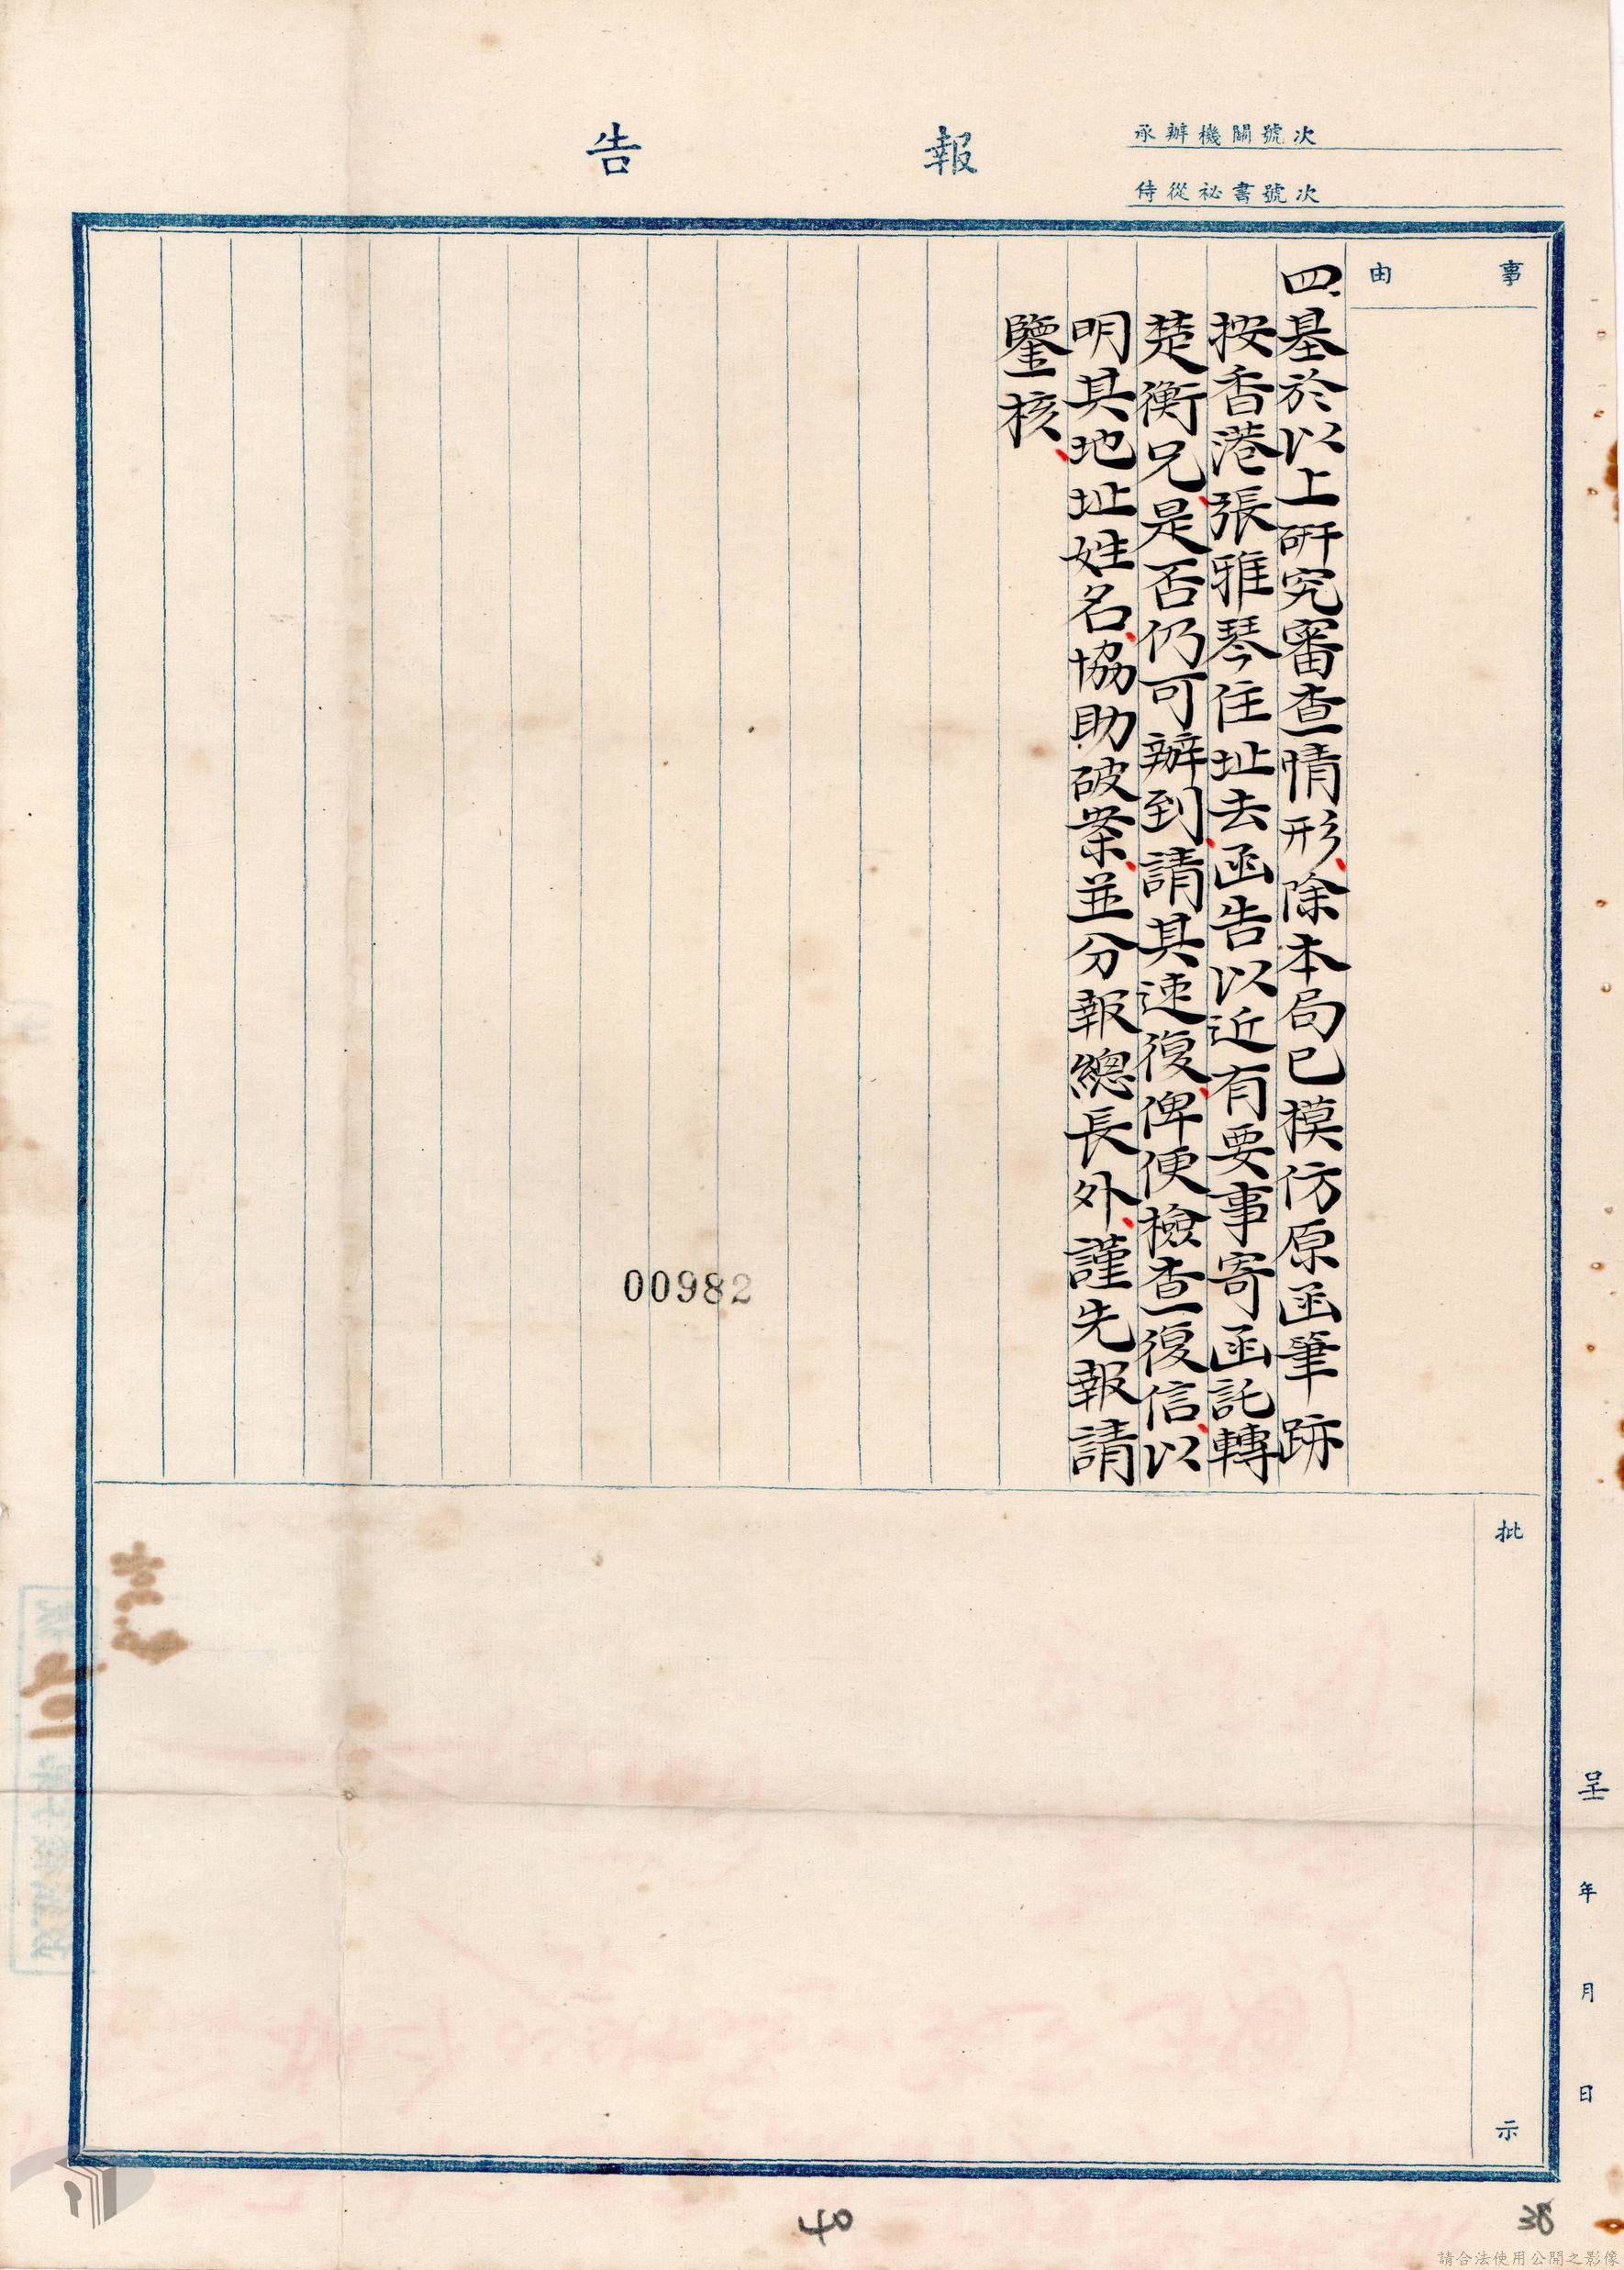 承辦機關號次
侍從祕書號次
報告
事由
四、基於以上研究審查情形、除本局已模仿原函筆跡
按香港張雅琴住址去、函告以近有要事寄函託轉
楚衡兄、是否仍可辦到請其速復、俾便檢查復信、以
明其地址姓名、協助破案、並分報總長外、謹先報請
鑒核、
批示
呈 年 月 日
00982
40
38
請合法使用公開之影像